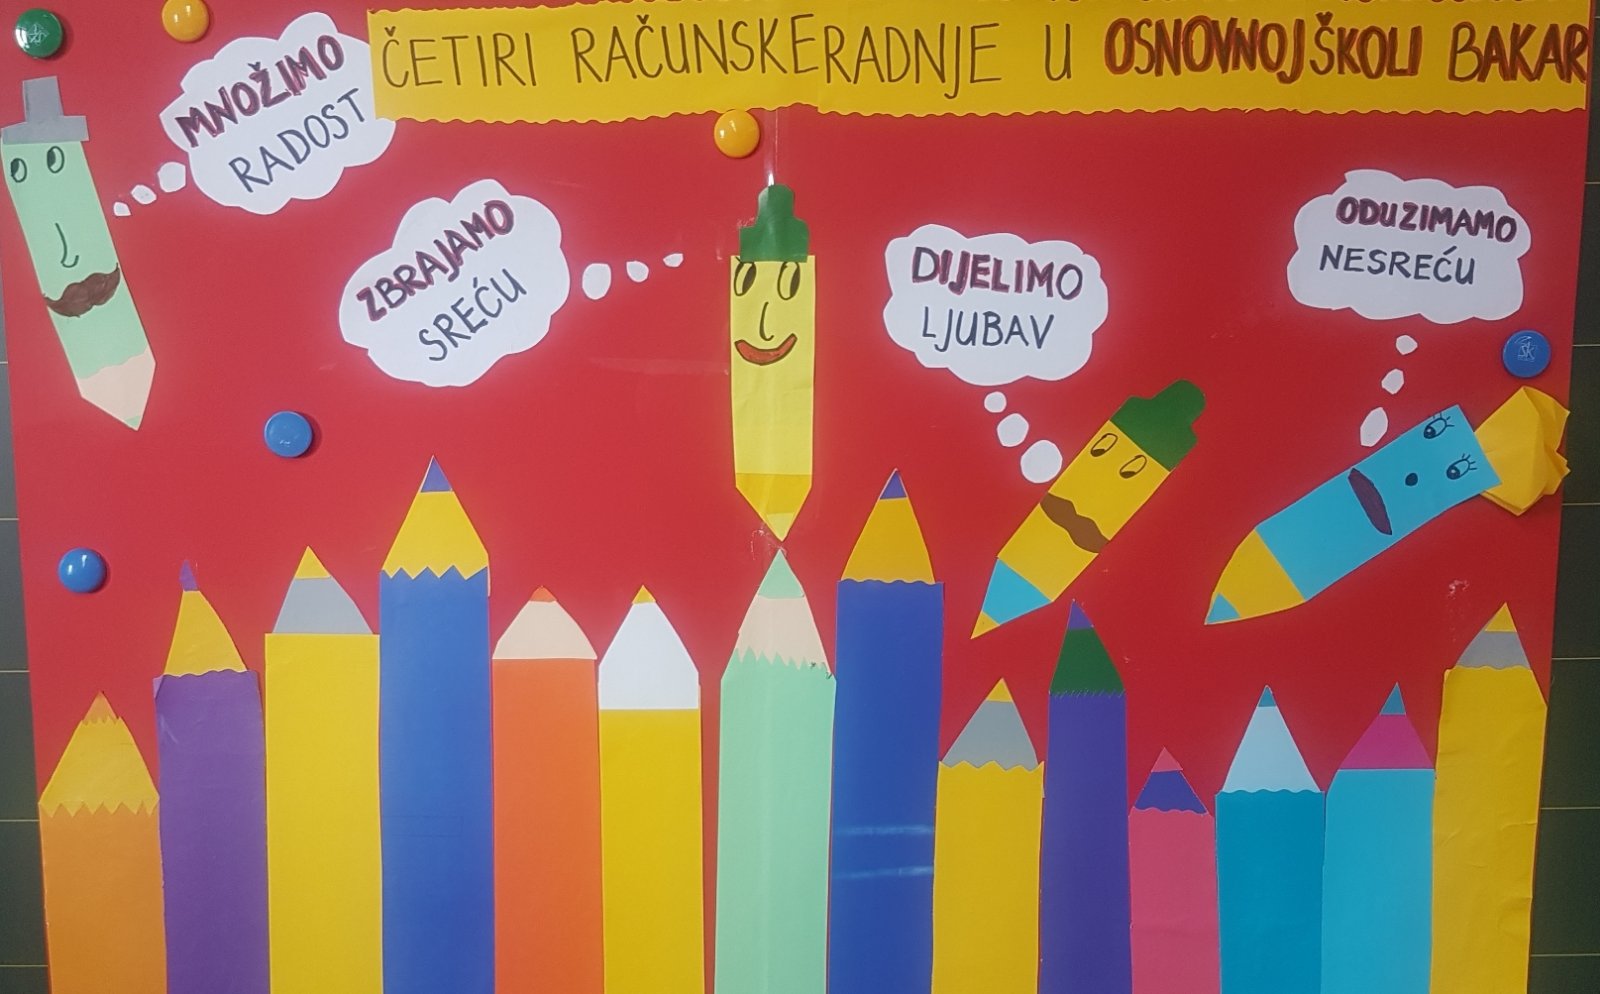 ČETIRI RAČUNSKE RADNJE U OSNOVNOJ ŠKOLI BAKAR
MNOŽIMO
RADOST
ZBRAJAMO
SREĆU
DIJELIMO
LJUBAV
ODUZIMAMO
NESREĆU